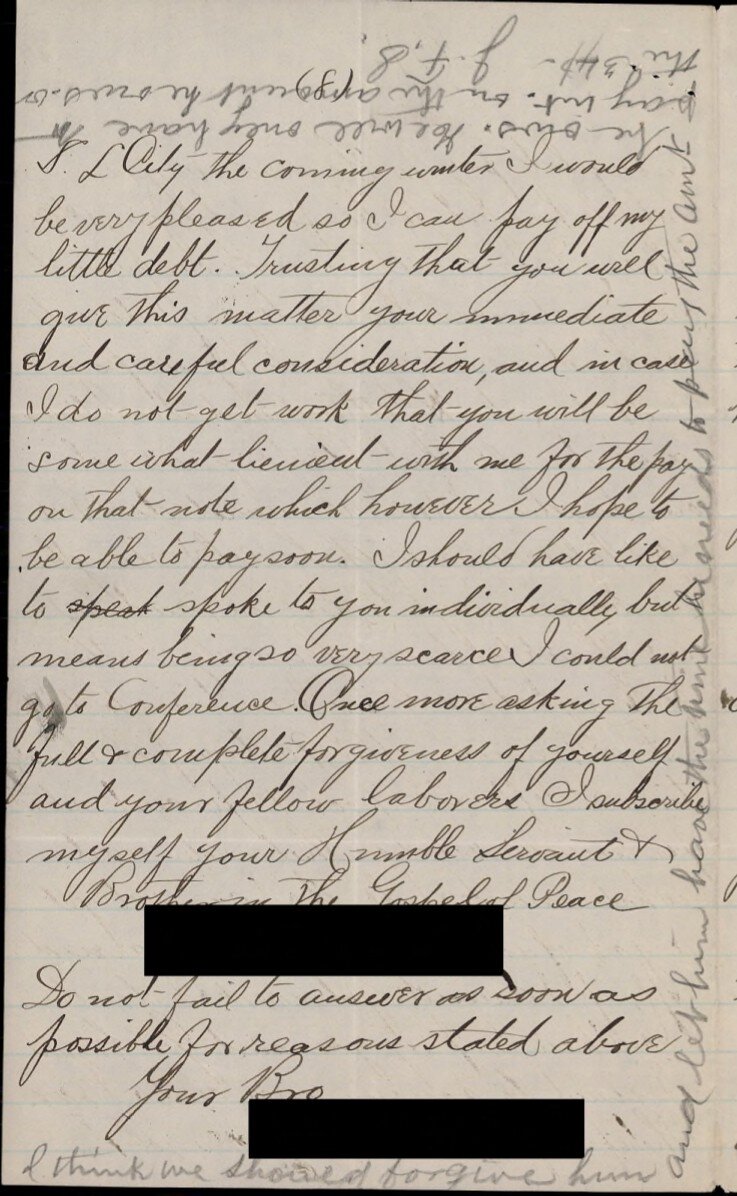 (8)
S. L City the coming winter I would
be very pleased so I can pay off my
little debt. Trusting that you will
give this matter your immediate
and careful consideration, and in case
I do not get work that you will be
some what lienient with me for the pay
on that note which however I hope to
be able to pay soon. I should have like
to speak spoke to you individually but
means being so very scarce I could not
go to Conference. Once more asking the
full & complete forgiveness of yourself
and your fellow laborers I subscribe
myself your Humble Servant &
Brother in the Gospel of Peace
Do not fail to answer as soon as
possible for reasons stated above
Your Bro
I think we should forgive him
and let him have the time he needs to pay the amt
he owes. He will only have to
pay int. on the amount he owes
J. F. S.